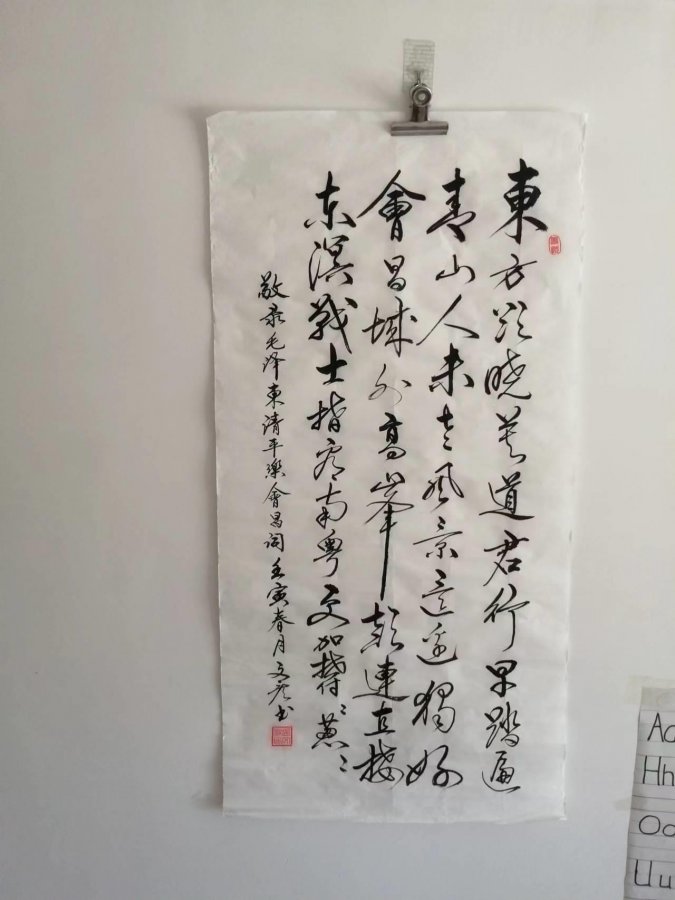 東方欲晓莫道君行早踏遍
青山人未老风景這邊獨好
會昌城外高峰颠連直接
东溟戰士指看南粤更加欝〻葱〻
敬录毛泽東清平樂會昌词壬寅春月文彦书
Aa
Hh
Oo
Uu